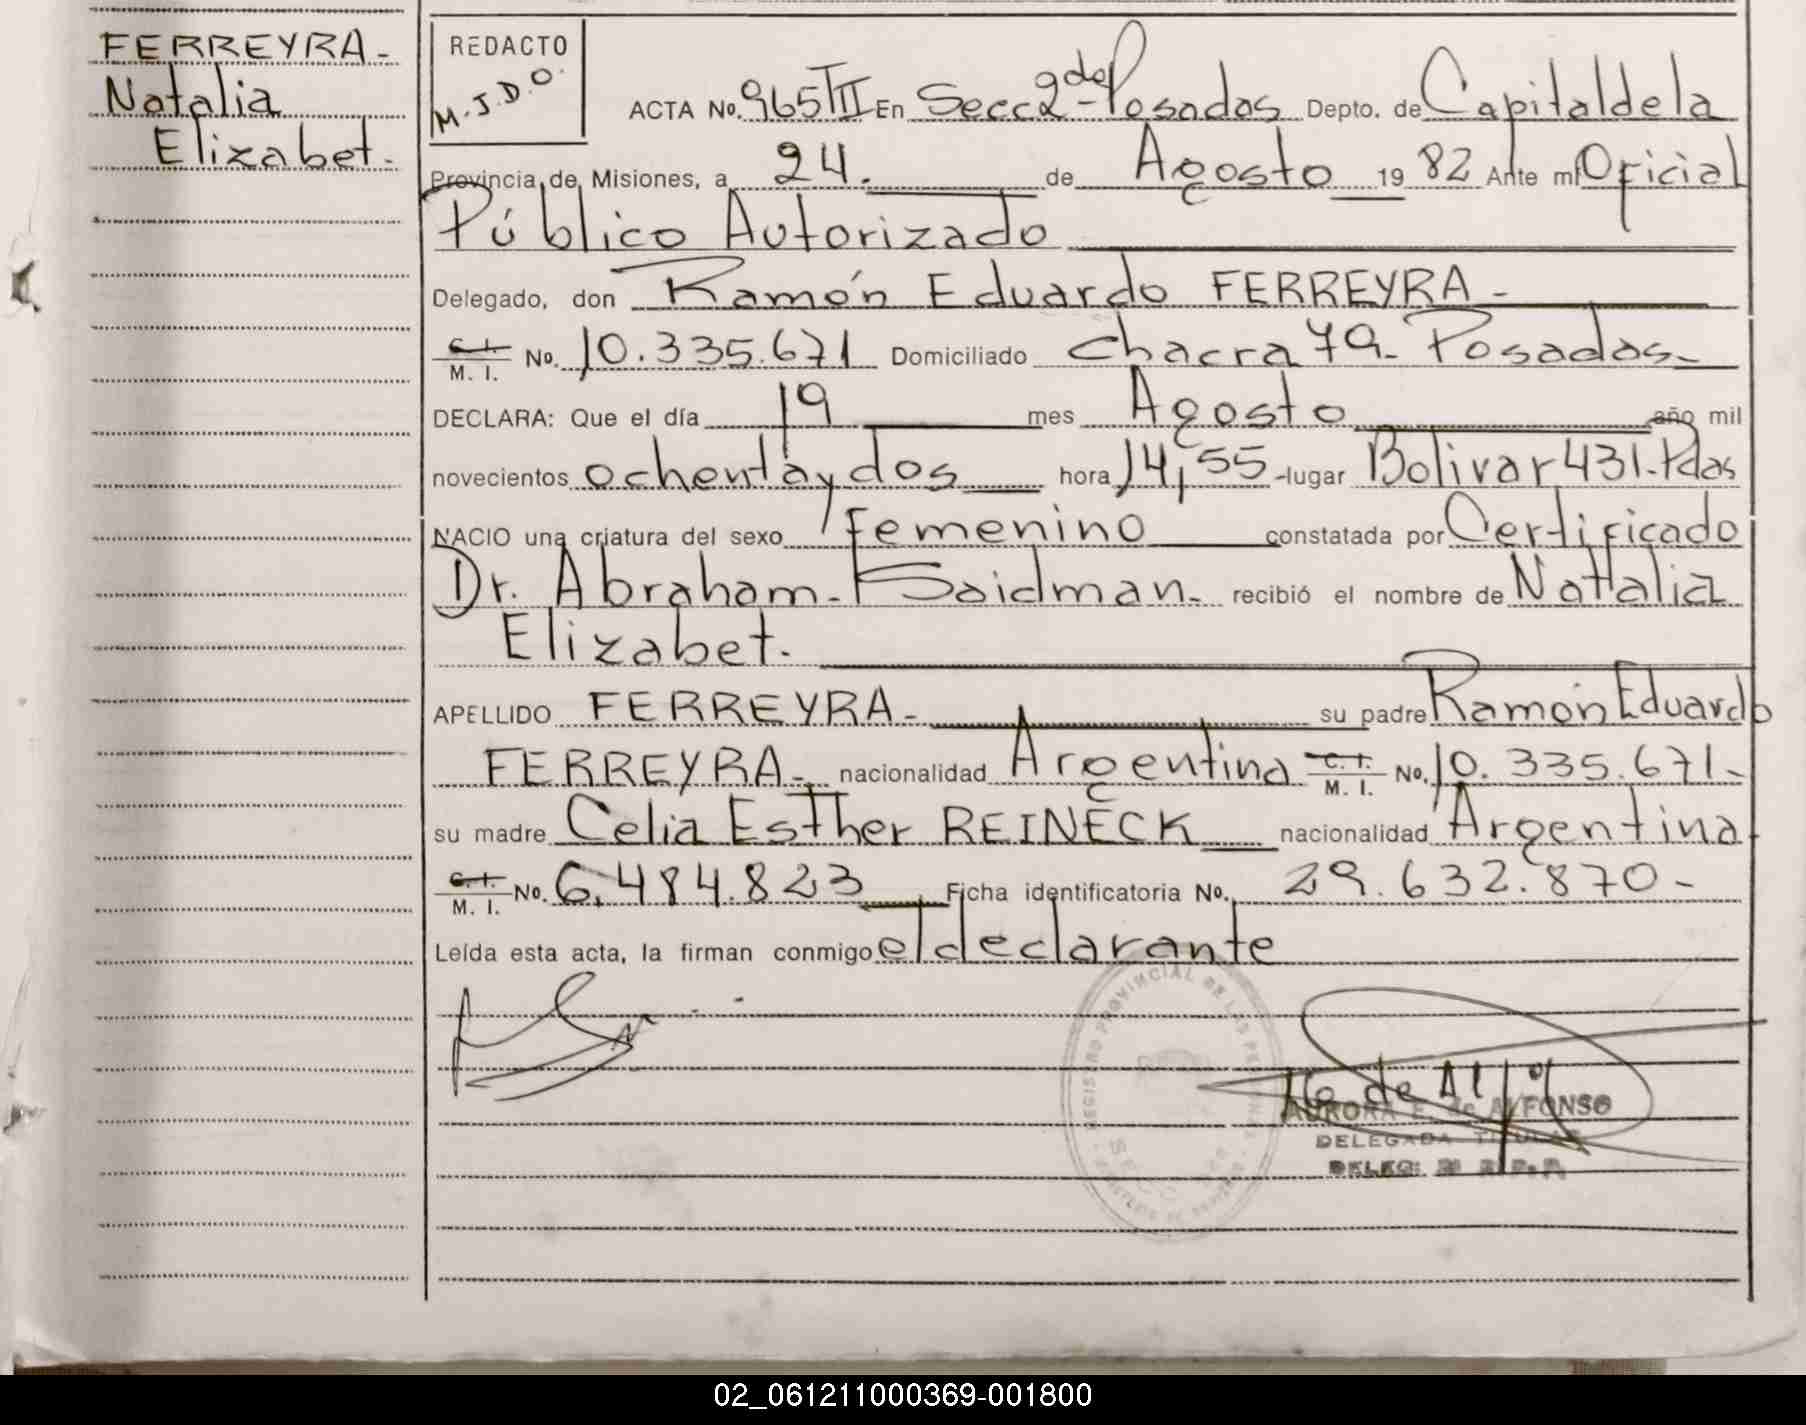 FERREYRA-
Natalia
Elizabet.
REDACTO
M.J.D.O.
ACTA No. 965 TºII En Secc 2da - Posadas Depto. de Capital de la
Provincia de Misiones, a 24. de Agosto 19 82 Ante mi Oficial
Público Autorizado
Delegado, don Ramón Eduardo FERREYRA-
C. I. M. I. No. 10.335.671 Domiciliado Chacra 79- Posadas-
DECLARA: Que el día 19 mes Agosto año mil
novecientos ochenta y dos hora 14,55 -lugar Bolivar 431-Pdas
NACIO una criatura del sexo Femenino constatada por Certificado
Dr. Abraham - Saidman- recibió el nombre de Natalia
Elizabet.
APELLIDO FERREYRA- su padre Ramón Eduardo
FERREYRA- nacionalidad Argentina C. I. M. I. No. 10.335.671-
su madre Celia Esther REINECK nacionalidad Argentina
C. I. M. I. No. 6.484.823 Ficha identificatoria No. 29.632.870-
Leída esta acta, la firman conmigo el declarante
REGISTRO PROVINCIAL DE LAS PERSONAS
AURORA E. de ALFONSO
DELEGADA TITULAR
02_061211000369-001800